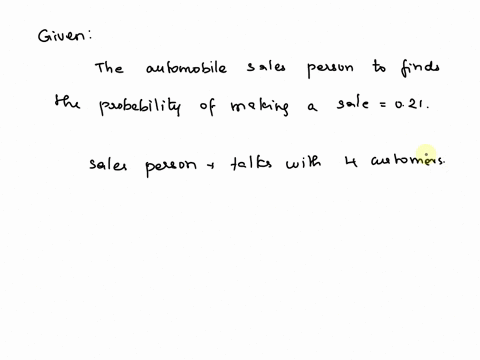 Given:
The automobile sales person to finds
the probability of making a sale = 0.21.
sales person + talks with 4 customers.